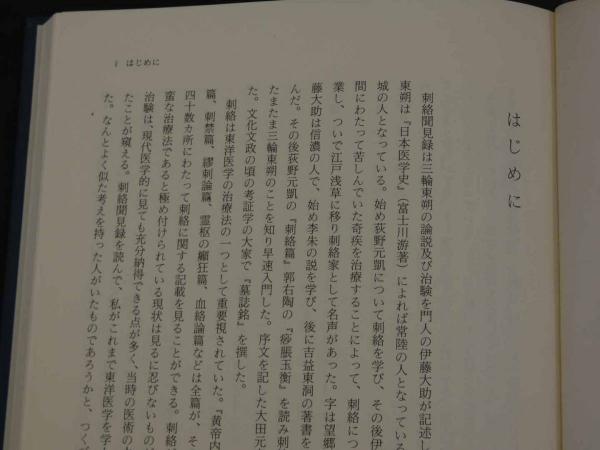 はじめに
刺絡聞見録は三輪東朔の論説及び治験を門人の伊藤大助が記述し
東朔は『日本医学史』(富士川游著)によれば常陸の人となっている
城の人となっている。始め荻野元凱について刺絡を学び、その後伊
間にわたって苦しんでいた奇疾を治療することによって、刺絡につ
業し、ついで江戸浅草に移り刺絡家として名声があった。字は望郷
藤大助は信濃の人で、始め李朱の説を学び、後に吉益東洞の著書を
んだ。その後荻野元凱の『刺絡篇』郭右陶の『痧脹玉衡』を読み刺
たまたま三輪東朔のことを知り早速入門した。序文を記した大田元
た。文化文政の頃の考証学の大家で『墓誌銘』を撰した。
刺絡は東洋医学の治療法の一つとして重要視されていた。『黄帝内
篇、刺禁篇、繆刺論篇、霊枢の癲狂篇、血絡論篇などは全篇が、そ
四十数カ所にわたって刺絡に関する記載を見ることができる。刺絡
蛮な治療法であると極め付けられている現状は見るに忍びないもの
治験は、現代医学的に見ても充分納得できる点が多く、当時の医術の
たことが窺える。刺絡聞見録を読んで、私がこれまで東洋医学を学
た。なんとよく似た考えを持った人がいたものであろうかと、つく
i はじめに